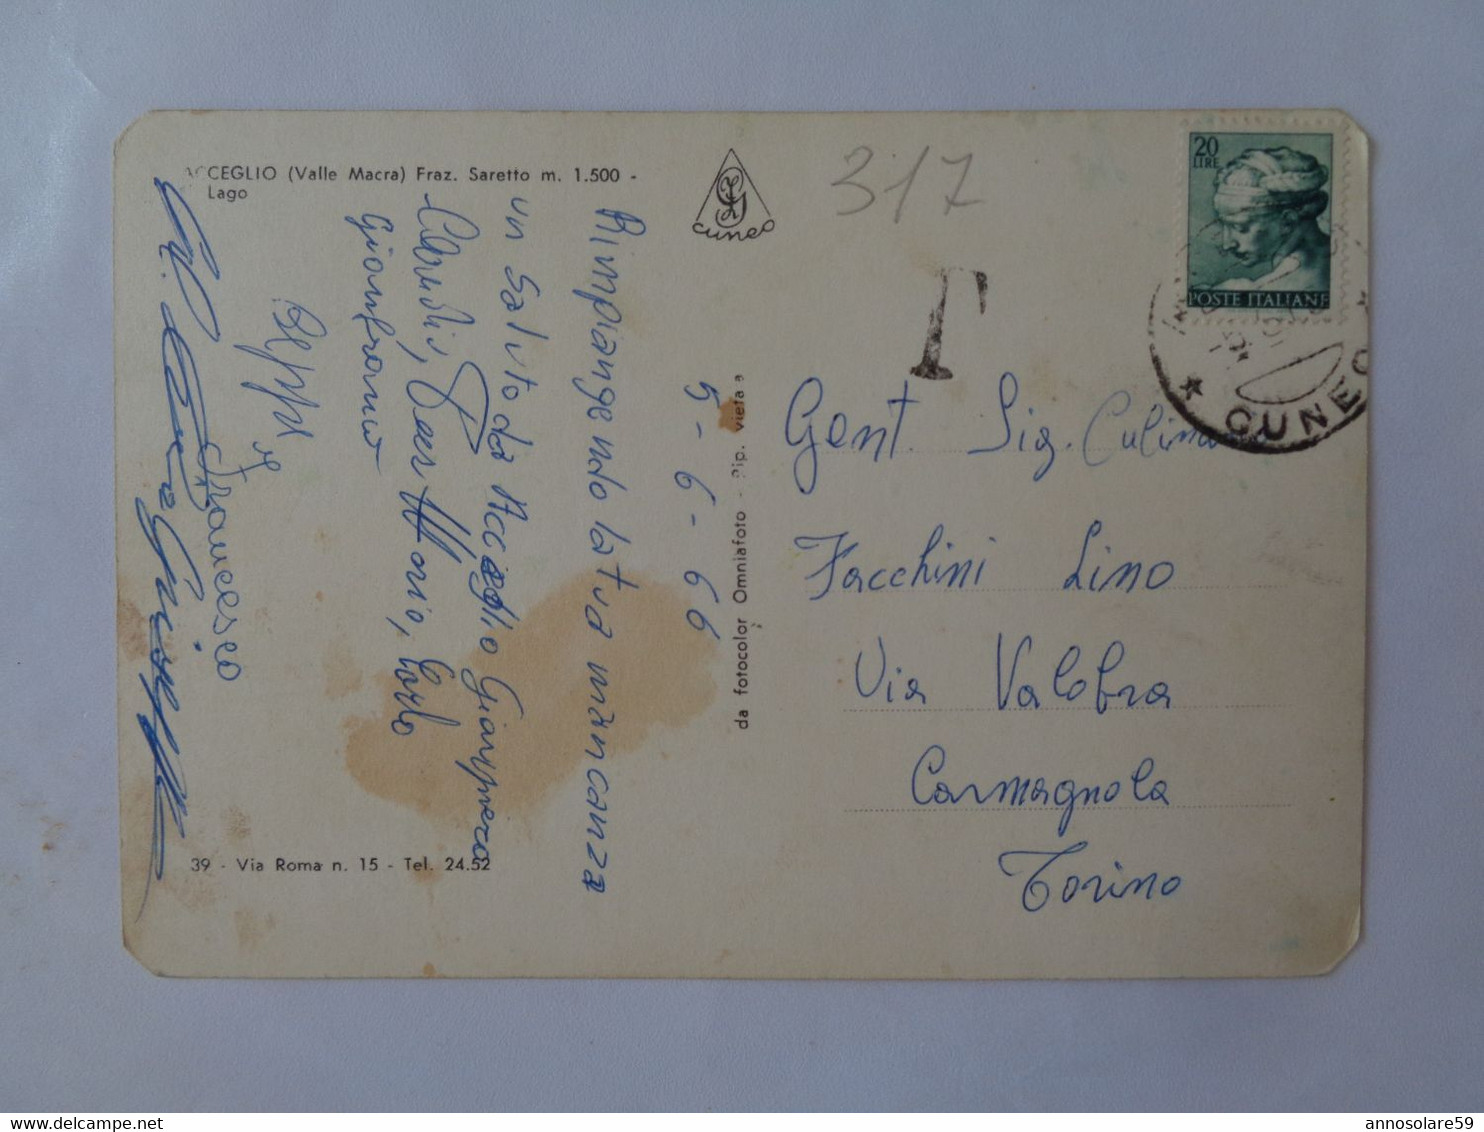 ACCEGLIO (Valle Macra) Fraz. Saretto m. 1.500 -
Lago
CUNEO
317
20
LIRE
POSTE ITALIANE
CUNEO
T
5-6-66
Rimpiangendo la tua mancanza
un saluto da Acceglio Giampiero
Claudio, Carlo
Gianfranco
Beppe
Francesco
Giuseppe
da fotocolor Omniafoto - Rip. vietata
Gent. Sig. Culima
Facchini Lino
Via Valobra
Carmagnola
Torino
39 - Via Roma n. 15 - Tel. 24.52
annosolare59